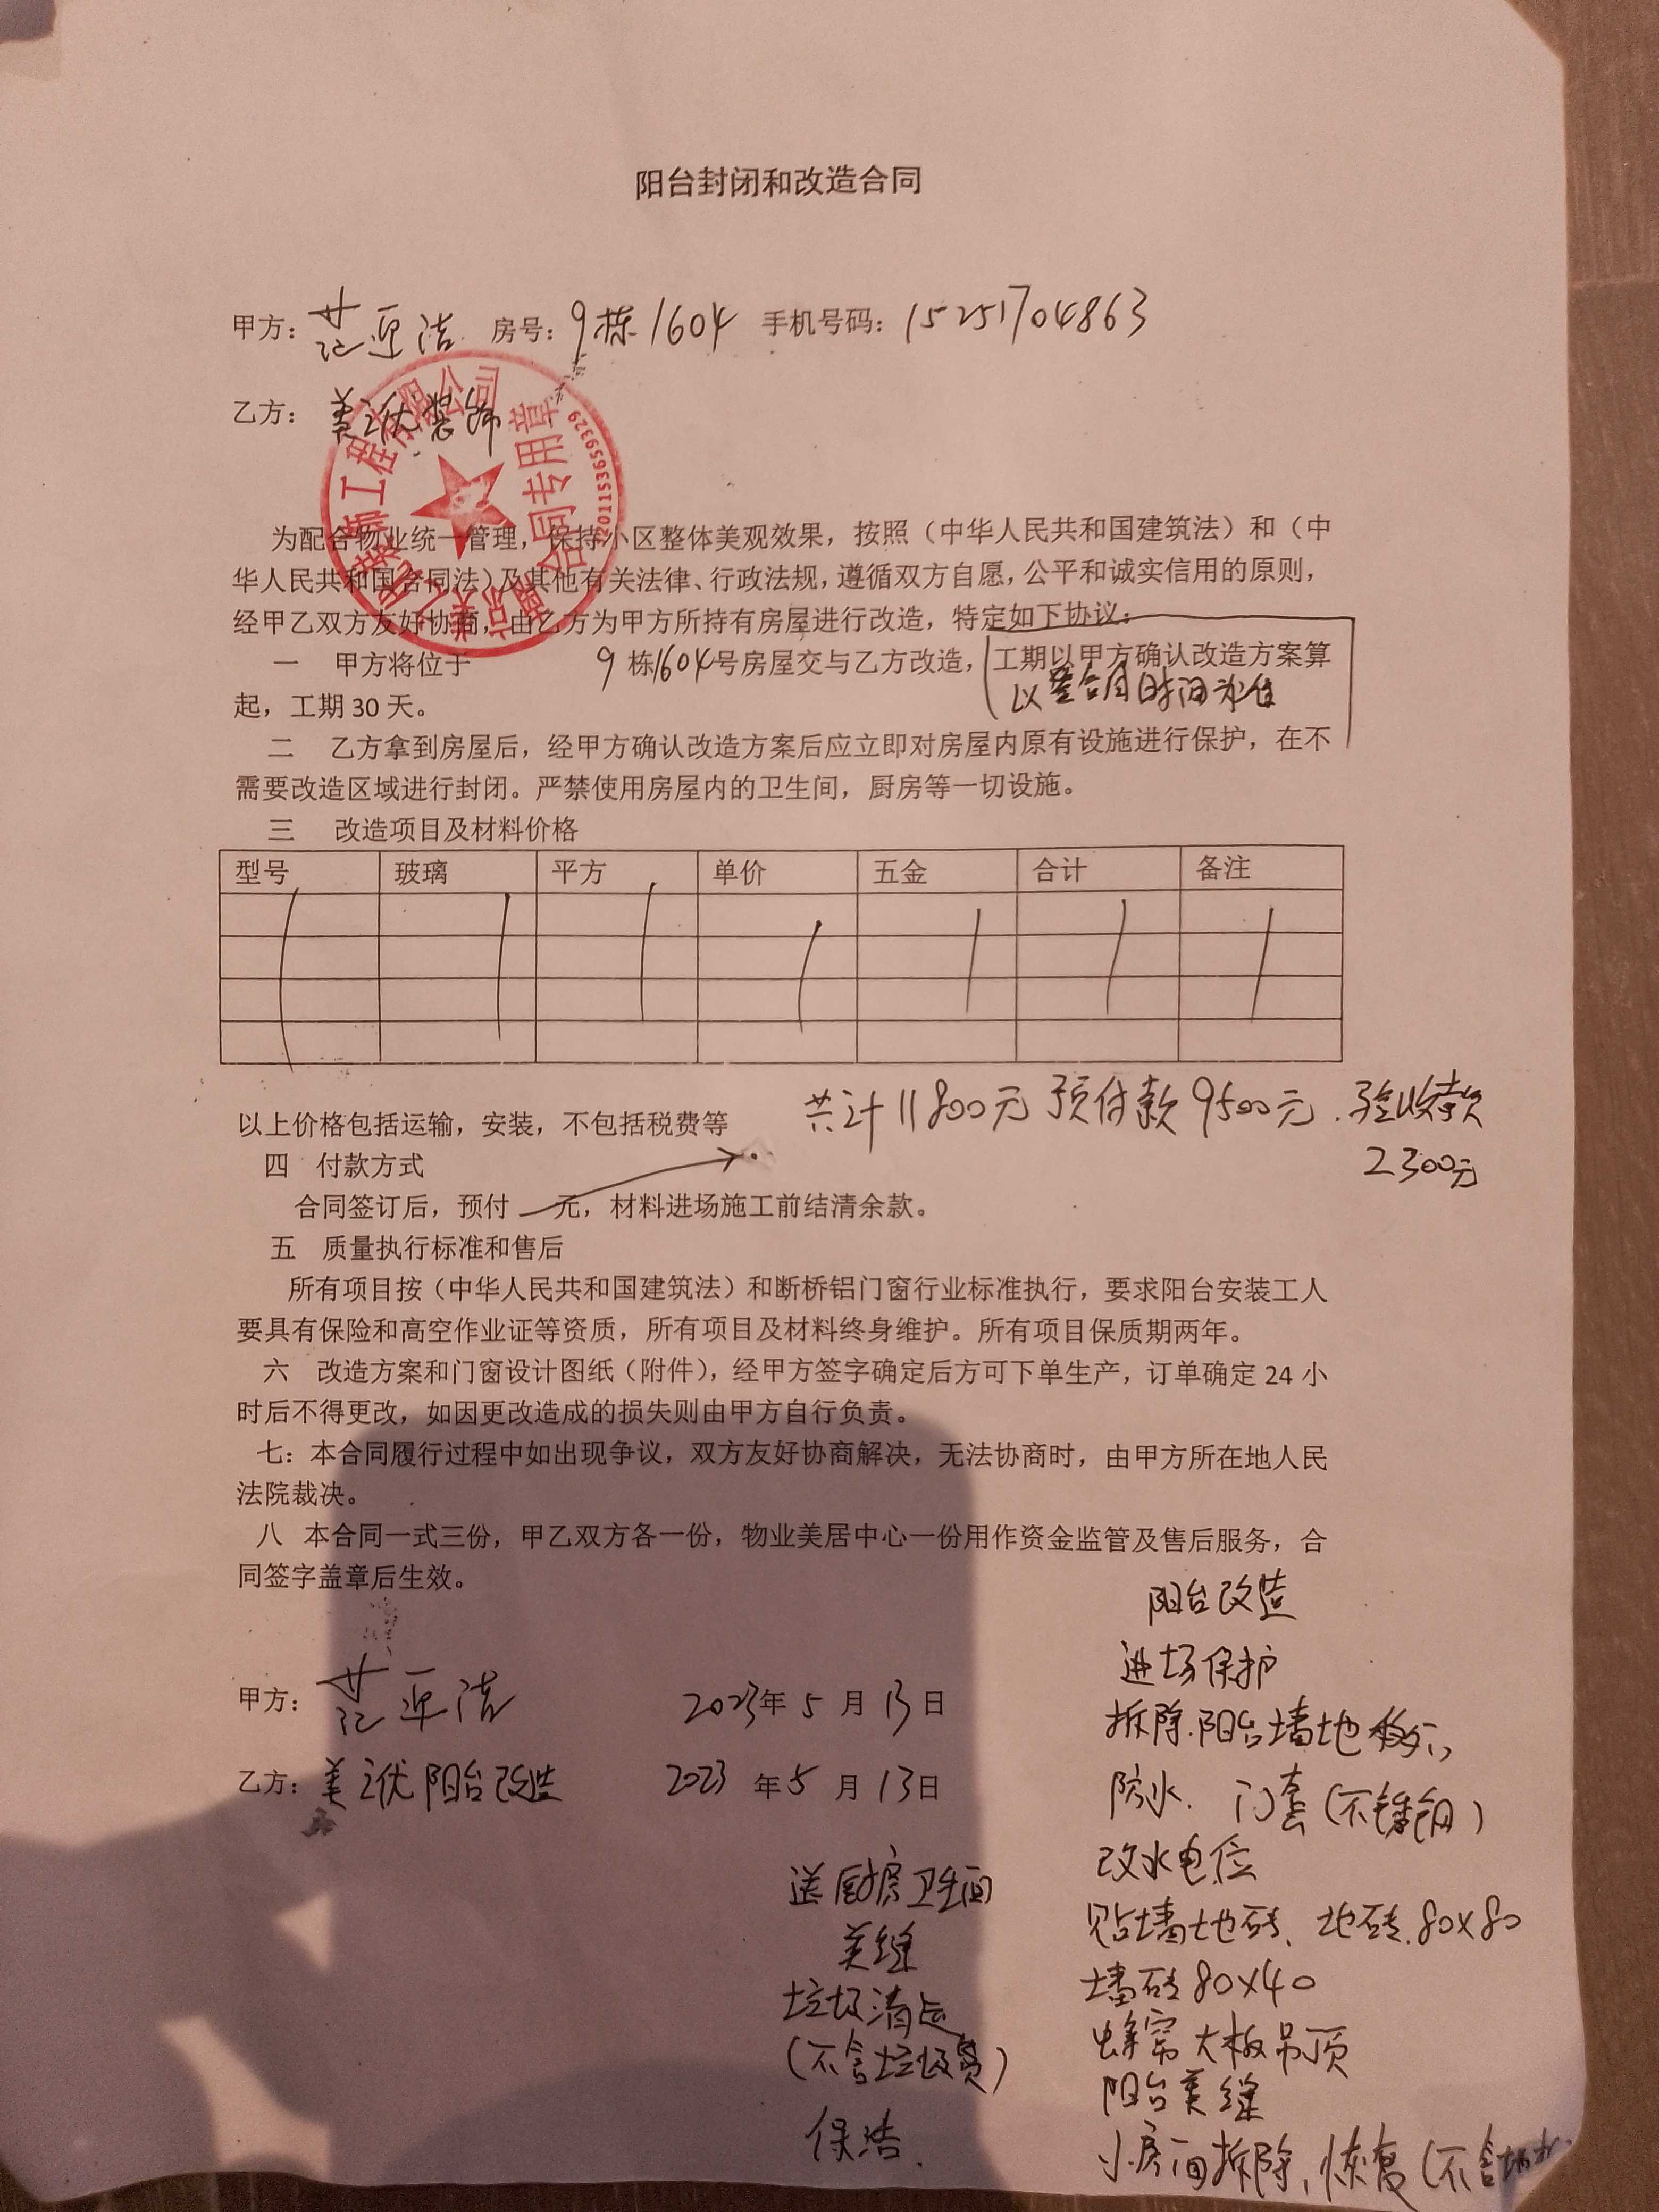 阳台封闭和改造合同
甲方： 范亚洁 房号：9栋1604 手机号码：15251704863
乙方： 美之优装饰
工程有限公司
合同专用章
为配合物业统一管理，保持小区整体美观效果，按照（中华人民共和国建筑法）和（中
华人民共和国合同法）及其他有关法律、行政法规，遵循双方自愿，公平和诚实信用的原则，
经甲乙双方友好协商，由乙方为甲方所持有房屋进行改造，特定如下协议：
一 甲方将位于 9栋1604号房屋交与乙方改造，工期以甲方确认改造方案算
以签合同时间为准
起，工期 30 天。
二 乙方拿到房屋后，经甲方确认改造方案后应立即对房屋内原有设施进行保护，在不
需要改造区域进行封闭。严禁使用房屋内的卫生间，厨房等一切设施。
三 改造项目及材料价格
型号 玻璃 平方 单价 五金 合计 备注
共计11800元 预付款9500元.验收款
以上价格包括运输，安装，不包括税费等
2300元
四 付款方式
合同签订后，预付 元，材料进场施工前结清余款。
五 质量执行标准和售后
所有项目按（中华人民共和国建筑法）和断桥铝门窗行业标准执行，要求阳台安装工人
要具有保险和高空作业证等资质，所有项目及材料终身维护。所有项目保质期两年。
六 改造方案和门窗设计图纸（附件），经甲方签字确定后方可下单生产，订单确定 24 小
时后不得更改，如因更改造成的损失则由甲方自行负责。
七：本合同履行过程中如出现争议，双方友好协商解决，无法协商时，由甲方所在地人民
法院裁决。
八 本合同一式三份，甲乙双方各一份，物业美居中心一份用作资金监管及售后服务，合
同签字盖章后生效。
甲方： 范亚洁 2023年 5 月 13 日
乙方： 美之优阳台改造 2023 年 5 月 13日
阳台改造
进场保护
拆除.阳台墙地
防水. 门套（不锈钢）
改水电位
贴墙地砖、地砖.80×80
墙砖80×40
蜂窝大板吊顶
阳台美缝
小房间拆除,恢复(不含
送厨房卫生间
美缝
垃圾清运
（不含垃圾费）
保洁.